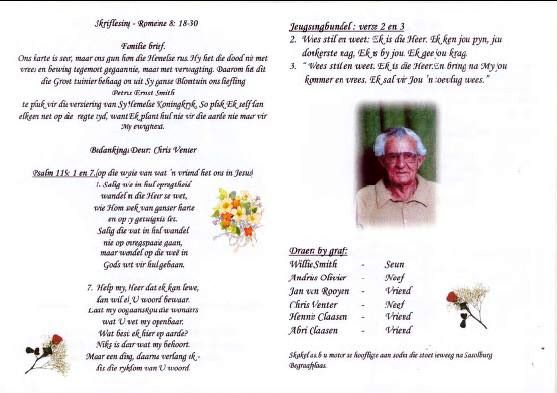 Skriflesing - Romeine 8: 18-30
Familie brief.
Ons harte is seer, maar ons gun hom die Hemelse rus. Hy het die dood nie met
vrees en bewing tegemoet gegaan nie, maar met verwagting. Daarom het dit
die Groot tuinier behaag om uit Sy ganse Blomtuin ons liefling
Petrus Ernst Smith
te pluk vir die versiering van Sy Hemelse Koningkryk. So pluk Ek self dan
elkeen net op die regte tyd, want Ek plant hul nie vir die aarde nie maar vir
My ewigheid.
Bedankings Deur: Chris Venter
Psalm 119: 1 en 7. (op die wysie van wat 'n vriend het ons in Jesus)
1. Salig wie in hul opregtheid
wandel in die Heer se wet,
wie Hom soek van ganser harte
en op sy getuignis let.
Salig die wat in hul wandel
nie op onregspaaie gaan,
maar wandel op die weë in
Gods wet vir hul gebaan.
7. Help my, Heer dat ek kan lewe,
dan wil ek U woord bewaar.
Laat my oog aanskou die wonders
wat U wet my openbaar.
Wat besit ek hier op aarde?
Niks is daar wat my behoort.
Maar een ding, daarna verlang ek -
dis die rykdom van U woord.
Jeugsangbundel : verse 2 en 3
2. Wees stil en weet: Ek is die Heer. Ek ken jou pyn, jou
donkerste nag, Ek is by jou. Ek gee jou krag.
3. " Wees stil en weet. Ek is die Heer. En bring na My jou
kommer en vrees. Ek sal vir Jou 'n toevlug wees."
Draers by graf:
Willie Smith - Seun
Andries Olivier - Neef
Jan van Rooyen - Vriend
Chris Venter - Neef
Hennie Claasen - Vriend
Abri Claasen - Vriend
Skakel asb u motor se hoofligte aan sodra die stoet beweeg na Sasolburg
Begraafplaas.